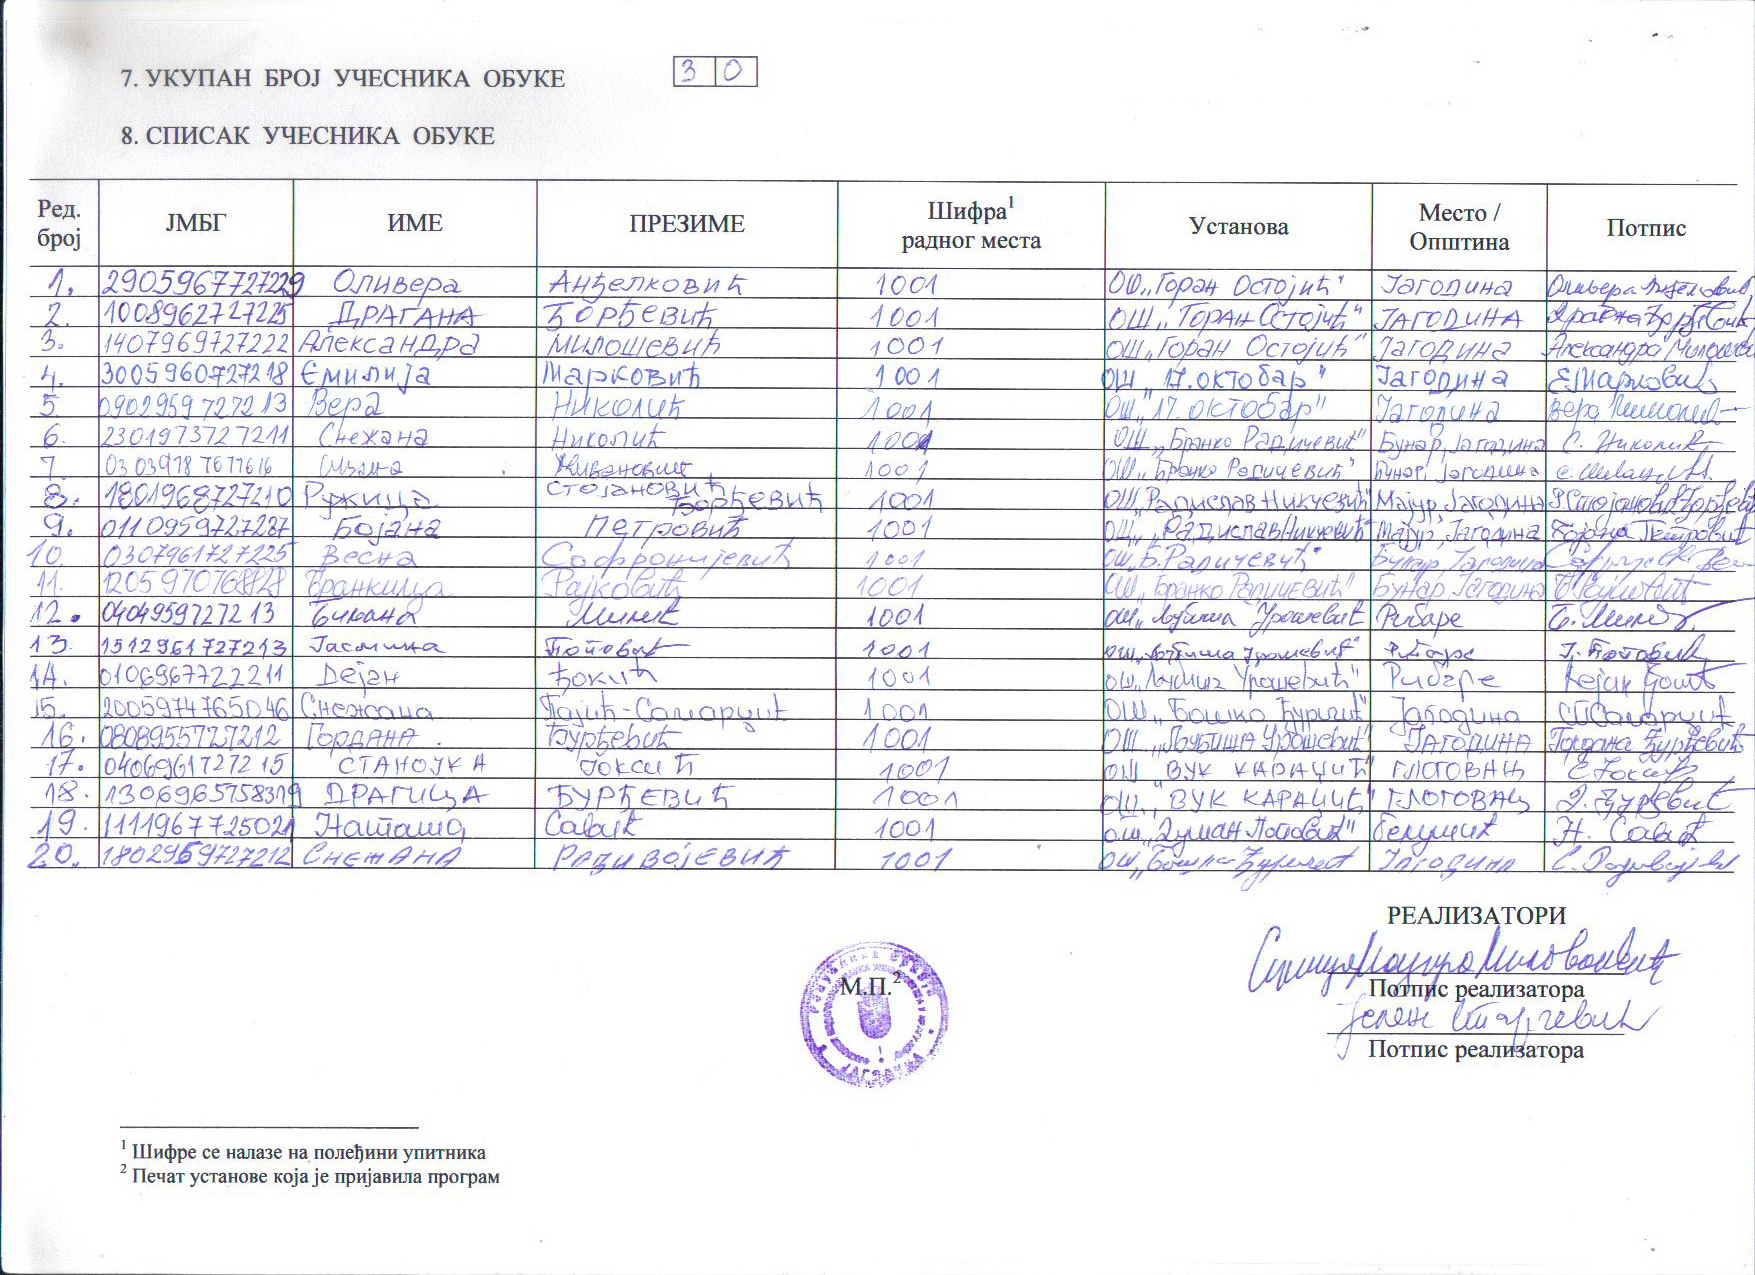 7. УКУПАН БРОЈ УЧЕСНИКА ОБУКЕ 3 0
8. СПИСАК УЧЕСНИКА ОБУКЕ
Ред. број ЈМБГ ИМЕ ПРЕЗИМЕ Шифра1 радног места Установа Место / Општина Потпис
1. 2905967727229 Оливера Анђелковић 1001 ОШ „Горан Остојић" Јагодина
2. 1008962727225 ДРАГАНА ЂОРЂЕВИЋ 1001 ОШ „Горан Остојић" ЈАГОДИНА
3. 1407969727222 Александра Милошевић 1001 ОШ „Горан Остојић" Јагодина
4. 3005960727218 Емилија Марковић 1001 ОШ "17. октобар" Јагодина Е Марковић
5. 0902959727213 Вера Николић 1001 ОШ "17. октобар" Јагодина Вера
6. 2301973727211 Снежана Николић 1001 ОШ „Бранко Радичевић" Бунар, Јагодина С. Николић
7. 1001 ОШ „Бранко Радичевић" Бунар, Јагодина
8. 1801968727210 Ружица Стојановић Ђорђевић 1001 ОШ „Радислав Никчевић" Мајур, Јагодина
9. 0110959727287 Бојана Петровић 1001 ОШ „Радислав Никчевић" Мајур, Јагодина Бојана Петровић
10. 0307961727225 Весна Софронијевић 1001 ОШ „Б. Радичевић" Бунар, Јагодина
11. Бранкица Рајковић 1001 ОШ „Бранко Радичевић" Бунар Јагодина
12. 0404959727213 Миљић 1001 ОШ „Љубиша Урошевић" Рибаре
13. 1512961727213 Јасмина Поповић 1001 ОШ „Љубиша Урошевић" Рибаре Ј. Поповић
14. 0106967722211 Дејан Ђокић 1001 ОШ „Љубиша Урошевић" Рибаре Дејан Ђокић
15. 2005974765046 Снежана Пајић-Самарџић 1001 ОШ „Бошко Ђуричић" Јагодина
16. 0808955727212 Гордана Ђурђевић 1001 ОШ „Љубиша Урошевић" ЈАГОДИНА Гордана Ђурђевић
17. 0406961727215 СТАНОЈКА 1001 ОШ "ВУК КАРАЏИЋ" ГЛОГОВАЦ
18. 1306965758319 ДРАГИЦА ЂУРЂЕВИЋ 1001 ОШ „ВУК КАРАЏИЋ" ГЛОГОВАЦ Д. Ђурђевић
19. 1111967725021 Наташа Савић 1001 ОШ „Душан Поповић" Белушић Н. Савић
20. 1802959727212 СНЕЖАНА РАДИВОЈЕВИЋ 1001 ОШ „Бошко Ђуричић" Јагодина
РЕАЛИЗАТОРИ
М.П.2
Потпис реализатора
Потпис реализатора
ЈАГОДИНА
1 Шифре се налазе на полеђини упитника
2 Печат установе која је пријавила програм